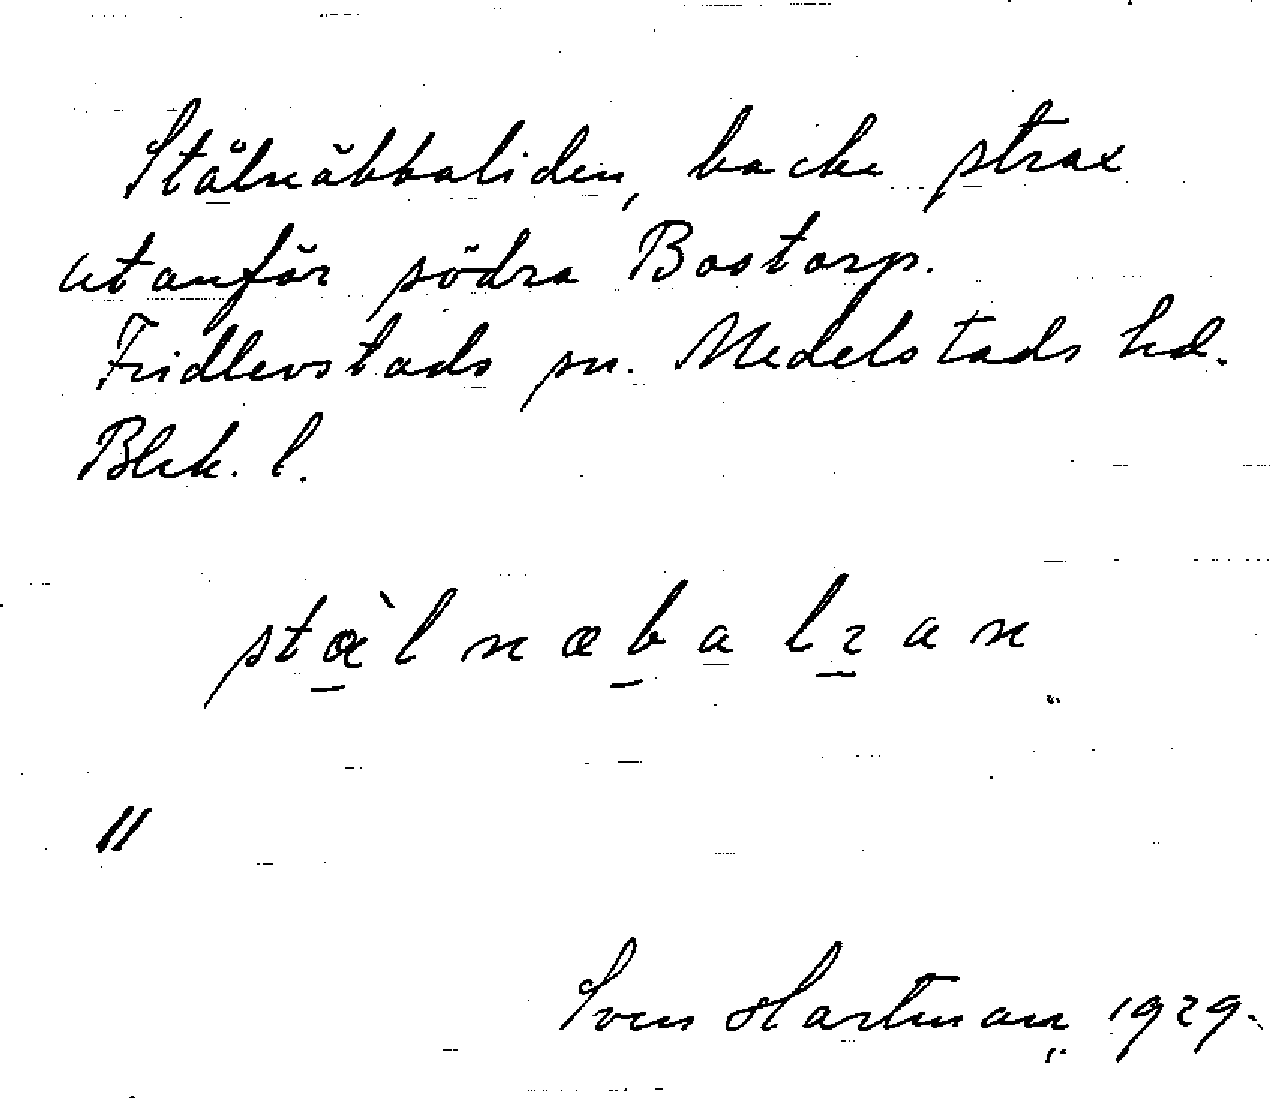 Stålnäbbaliden, backe strax
utanför södra Bostorp.
Fridlevstads sn. Medelstads hd.
Blek. l.
"
Sven Hartman 1929.